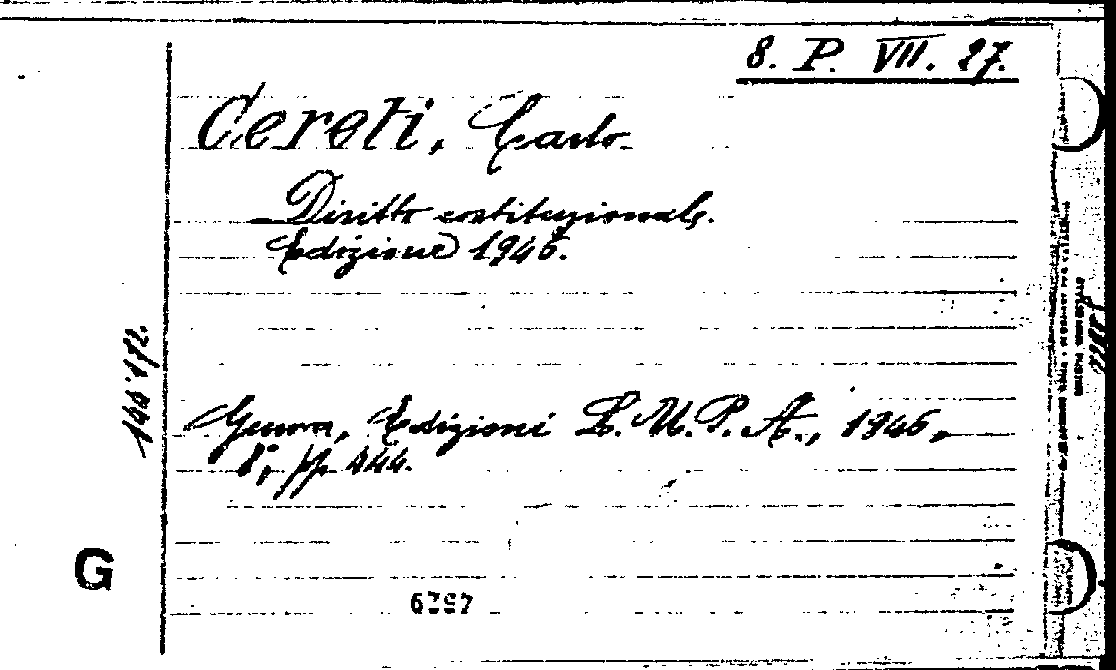 8. P. VII. 27.
Cereti, Carlo
Diritto costituzionale.
Edizione 1946.
Genova, Edizioni L.U.P.A., 1946,
8°, pp 444.
G